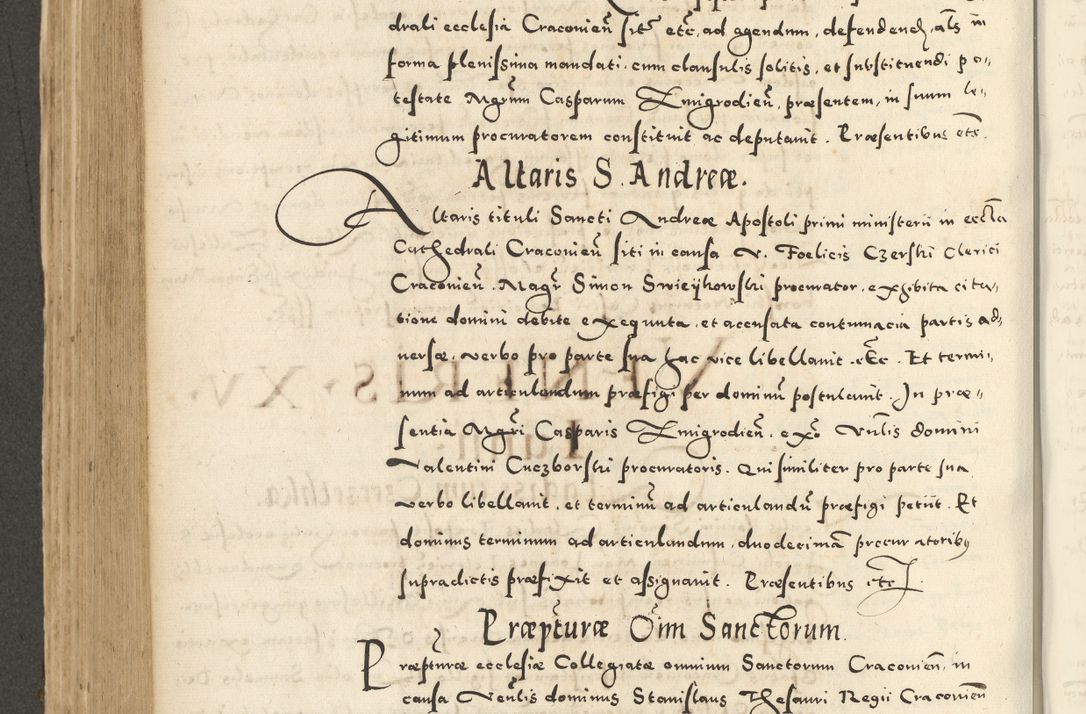 drali ecclesia Cracovien̄ sit̄ etc̄, ad agendum, defendend, als in
forma plenissima mandati, cum clausulis solitis, et substituendi po„
testate Mgrūm Casparum Zmigrodien̄, præsentem, in suum le„
gitimum procuratorem constituit ac deputavit. Præsentibus etc̄.
Altaris S. Andreæ.
Altaris tituli Sancti Andreæ Apostoli primi ministerii in eccl̄a
Cathedrali Cracovien̄ siti in causa V. Foelicis Czerski Clerici
Cracovien̄. Magr̄ Simon Swieijkowski procurator, exhibita cita„
tione domini debite exequuta, et accusata contumacia partis ad„
versæ, verbo pro parte sua hac vice libellavit. etc̄. Et termi„
num ad articulandum præfigi per dominū postulavit. In præ„
sentia Mgr̄i Casparis Zmigrodien̄. exō Vn̄lis domini
Valentini Cuczborski procuratoris. Qui similiter pro parte sua
verbo libellavit, et terminū ad articulandū præfigi petiit. Et
dominus terminum ad articulandum, duodecimā procuratoribus
supradictis præfixit et assignavit. Præsentibus etc.
Præpturæ Om̄m Sanctorum.
Præpturæ ecclesiæ Collegiatæ omnium Sanctorum Cracovien̄, in
causa Ven̄lis dominus Stanislaus Thesauri Regii Cracovien̄